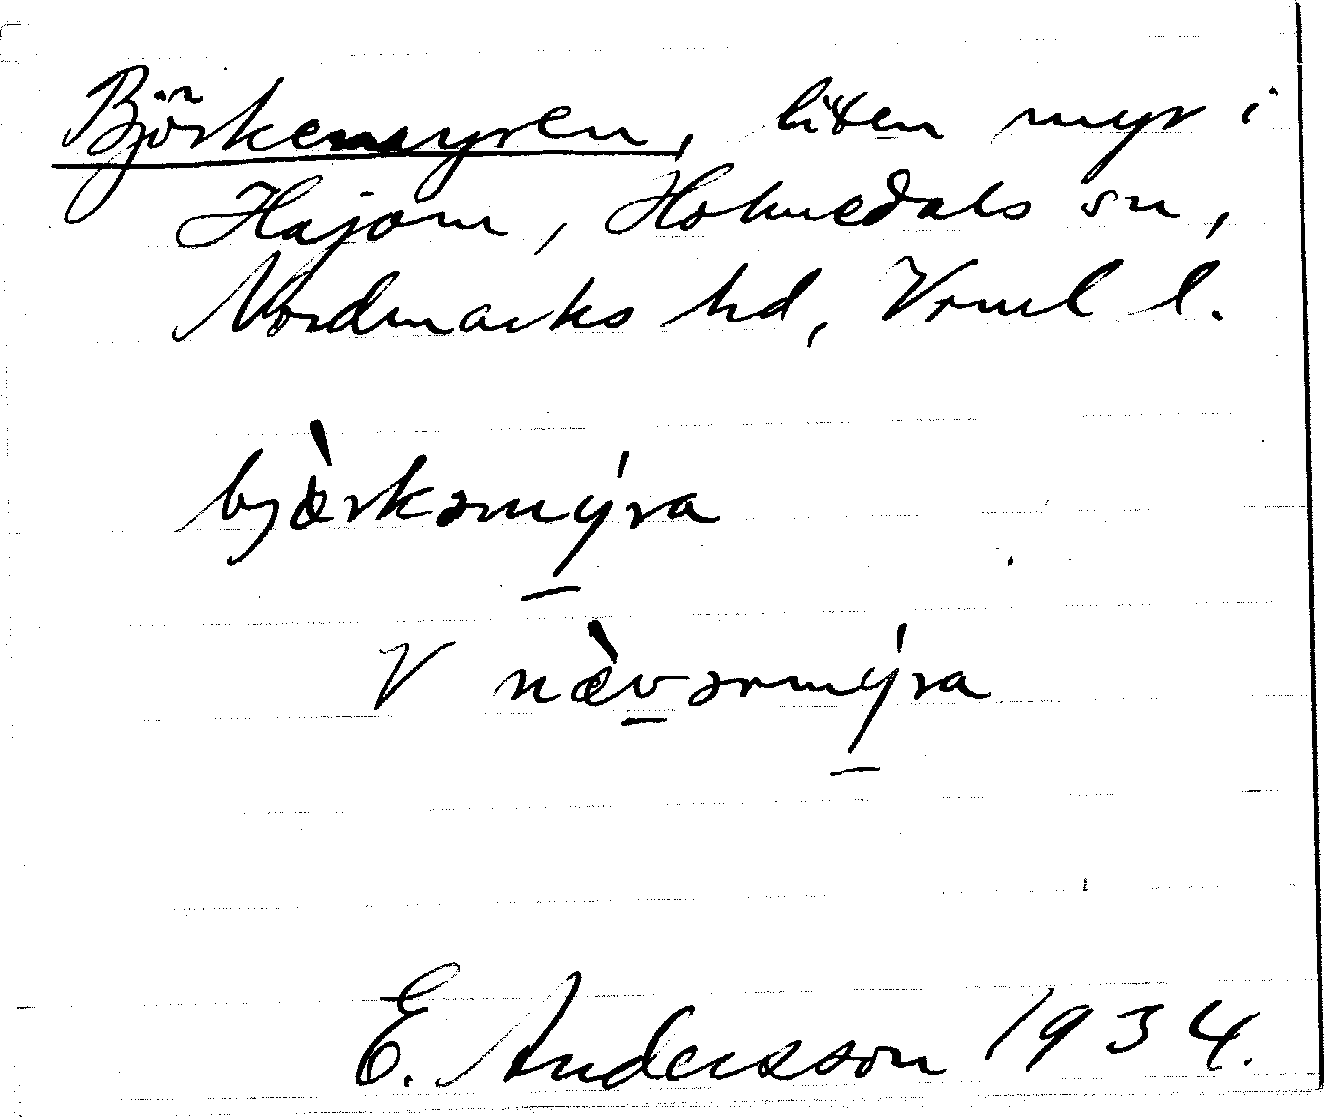 Björkemyren, liten myr i
Hajom, Holmedals sn,
Nordmarks hd, Vrml l.
bjæ̀rkəmýra
V næ̀vərmýra
E. Andersson 1934.